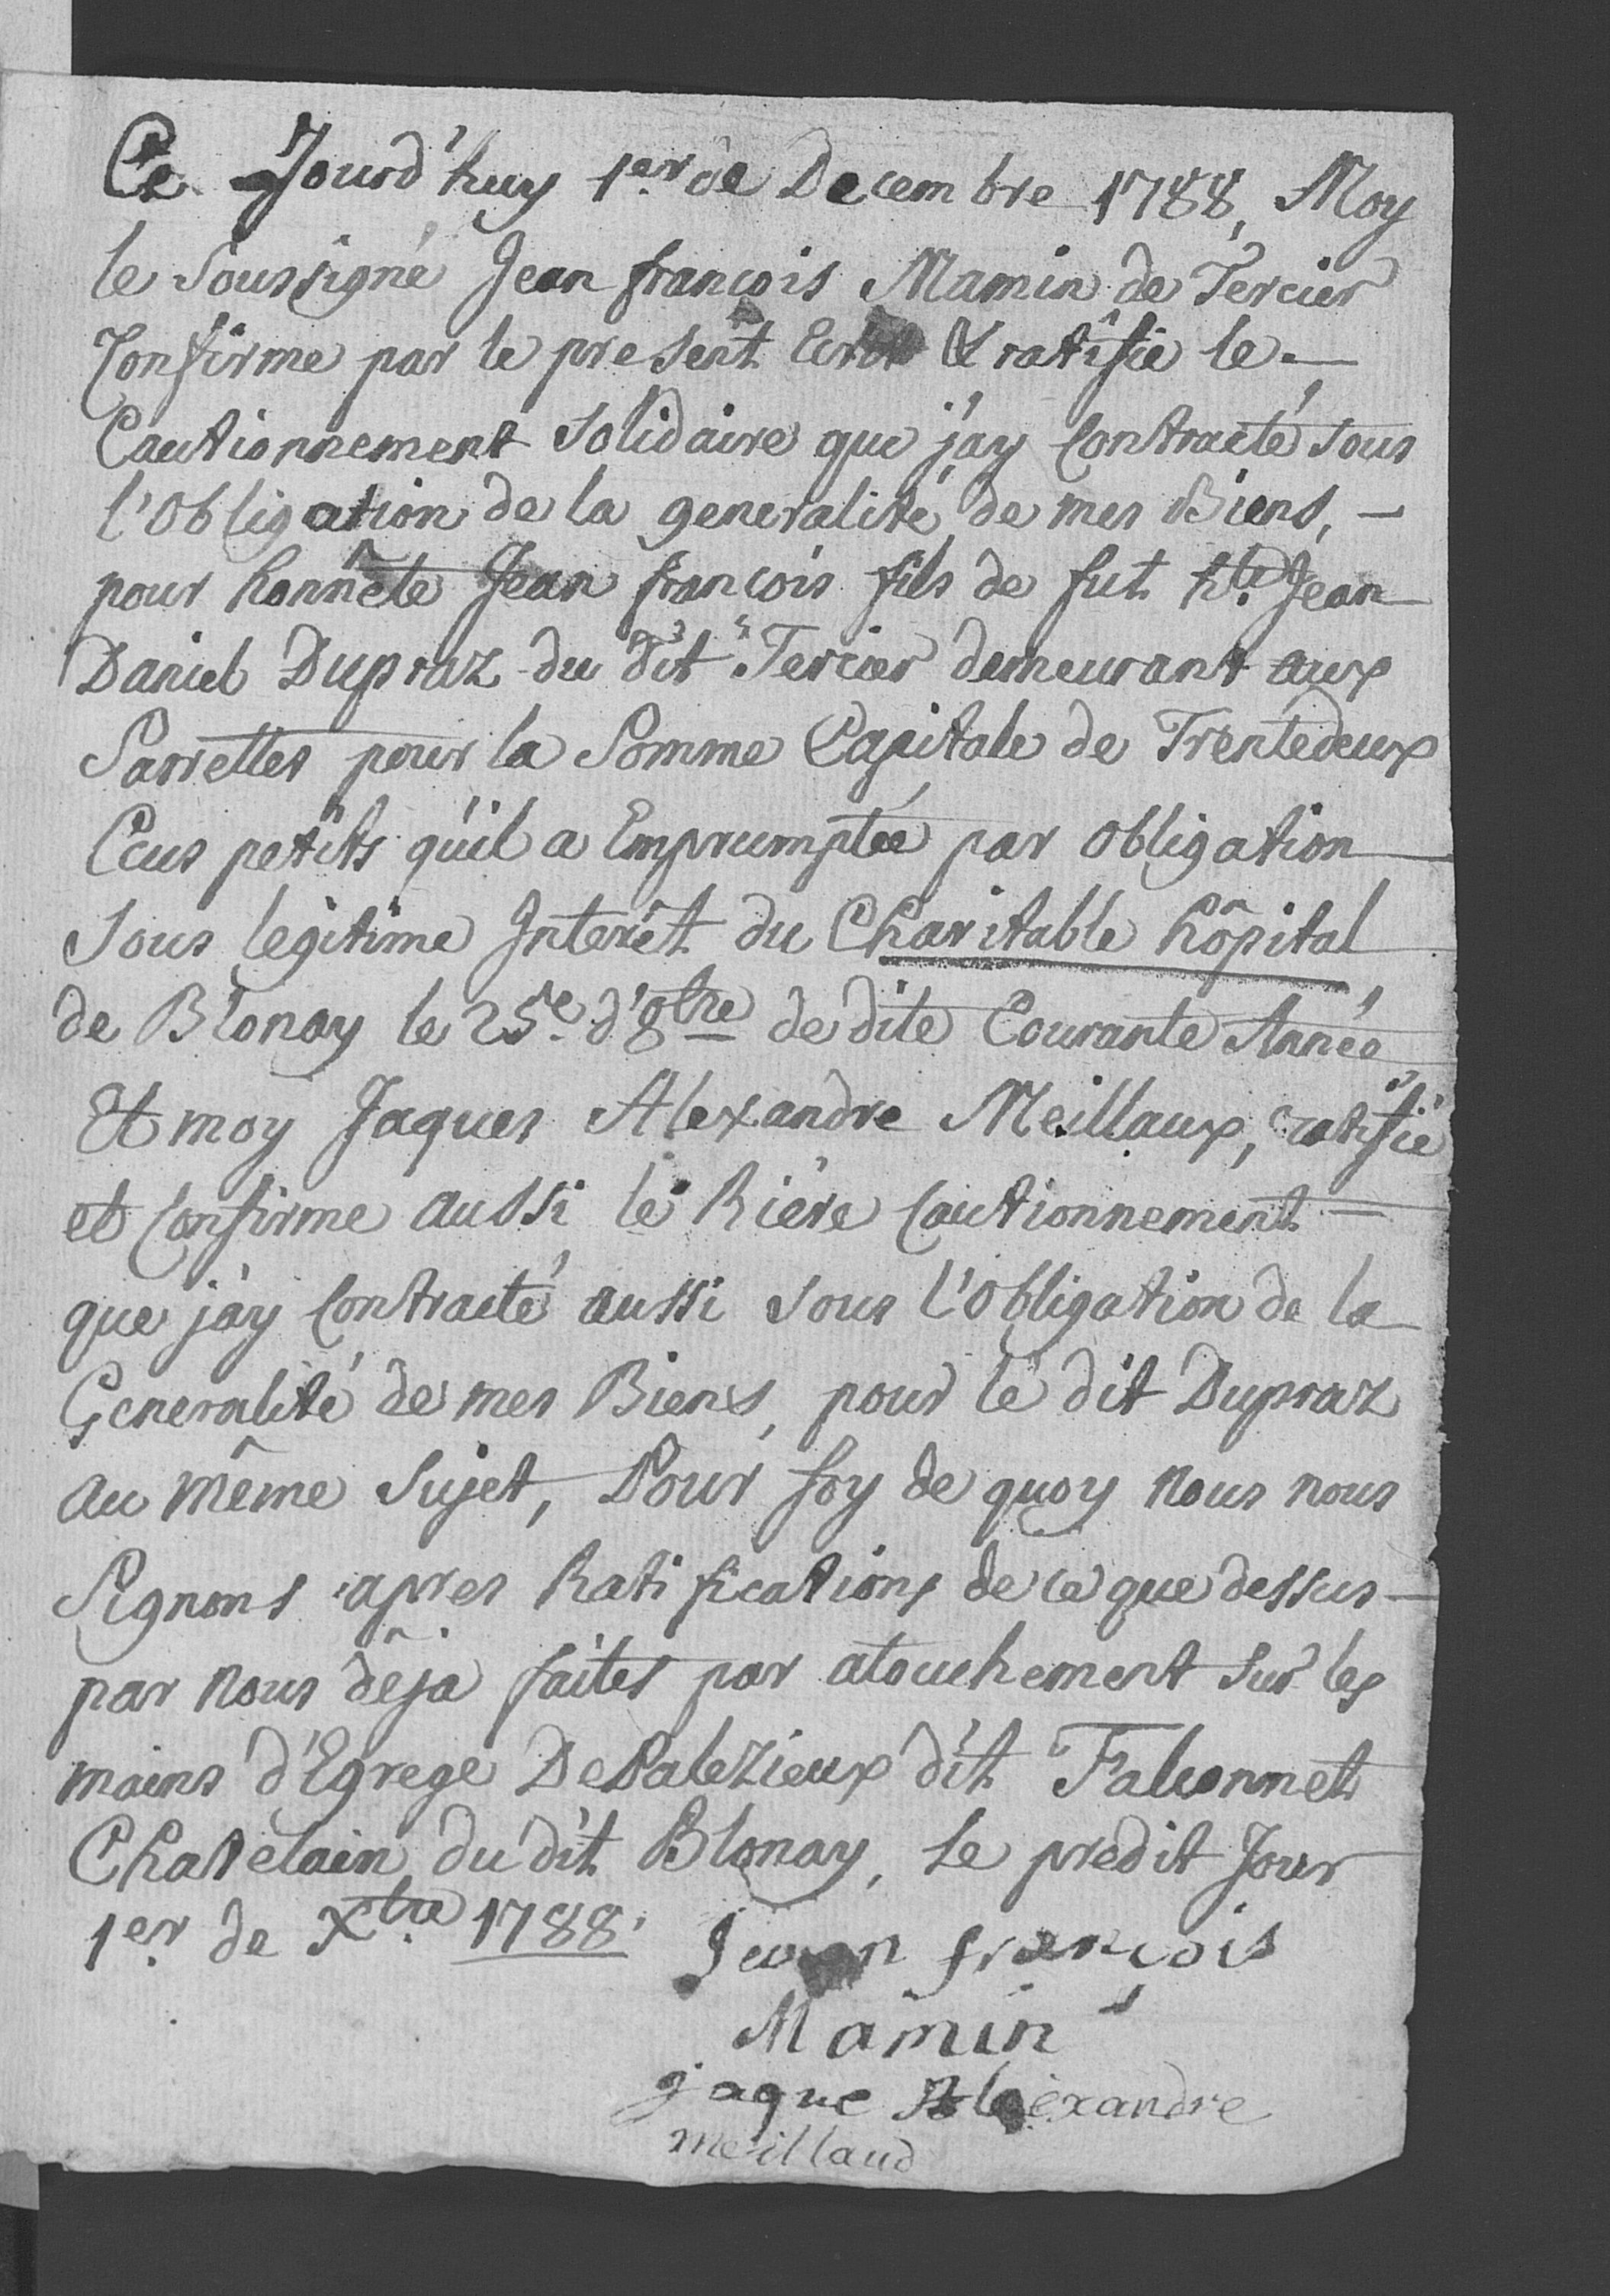 Ce Jourd'huy 1er de Decembre 1788, Moy
le Soussigné Jean françois Mamin de Tercier
Confirme par le present Ecrit & ratifie le —
Cautionnement Solidaire que j'ay Contracté sous
l'Obligation de la generalité de mes Biens, —
pour honnête Jean françois fils de fut hte Jean
Daniel Dupraz du dit Tercier demeurant aux
Sarrettes pour la Somme Capitale de Trentedeux
Ecus petits qu'il a Emprumptée par obligation
Sous legitime Interêt du Charitable hôpital
de Blonay le 25e d'8bre de dite Courante Année
Et moy Jaques Alexandre Meillaux, ratifie
et Confirme aussi le Riére Cautionnement =
que j'ay Contracté aussi sous l'Obligation de la
Generalité de mes Biens, pour le dit Dupraz
au même Sujet, Pour foy de quoy nous nous
Signons apres Ratifications de ce que dessus —
par nous dêja faites par atouchement sur les
mains d'Egrege DePalezieux dit Falconnet
Chatelain du dit Blonay, le predit Jour
1er de Xbre 1788.
Jean françois
Mamin
jaque Alexandre
meillaud